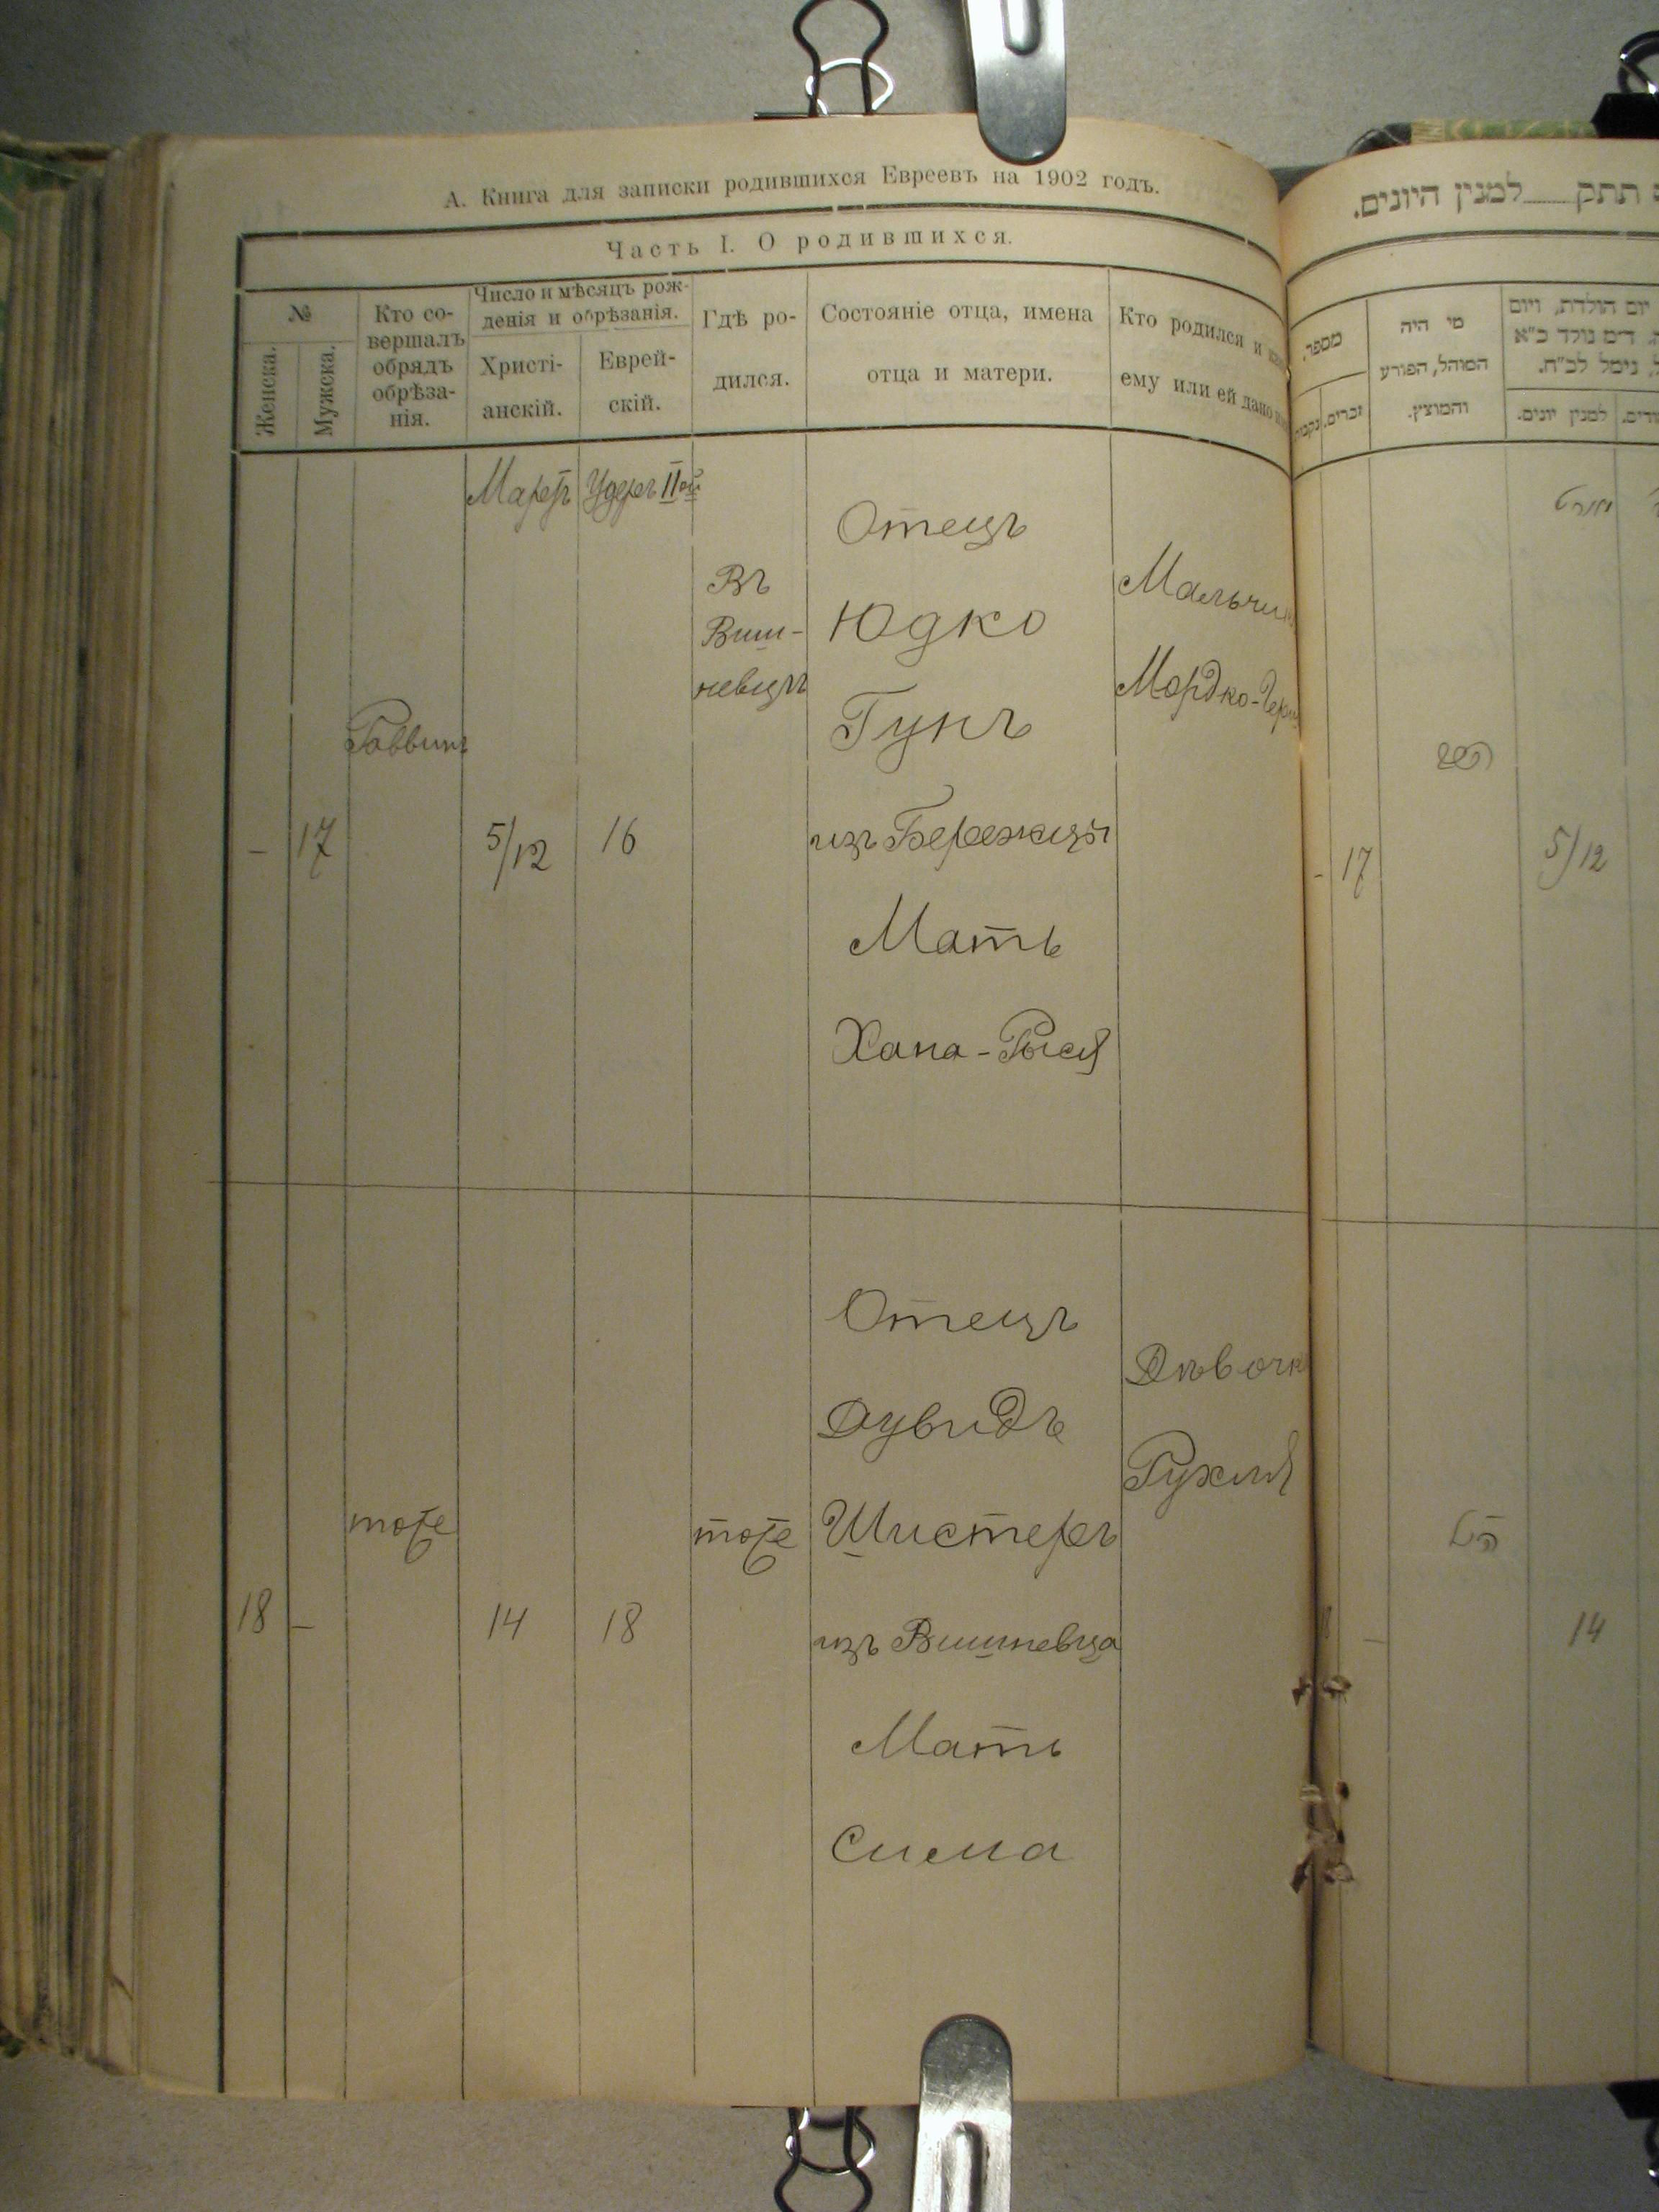 А. Книга для записки родившихся Евреевъ на 1902 годъ.
Часть I. О родившихся.
№
Женска.
Мужска.
Кто со-
вершалъ
обрядъ
обрѣза-
нія.
Число и мѣсяцъ рож-
денія и обрѣзанія.
Христі-
анскій.
Еврей-
скій.
Гдѣ ро-
дился.
Состояніе отца, имена
отца и матери.
Кто родился и
ему или ей дано
Мартъ
IIой
–
17
Раввинъ
5/12
16
Въ
Виш-
невцѣ
Отецъ
Юдко
Гунъ
изъ Бережецъ
Мать
Хана-Рыся
Мальчи
Мордко-
18
–
тоже
14
18
тоже
Отецъ
Дувидъ
Шистеръ
изъ Вишневца
Мать
Сима
Дѣвочк
Рухля
תתק למנין היונים.
מספר.
זכרים.
מי היה
המוהל, הפורע
והמוצץ.
יום הולדת, ויום
דים נולד כ״א
נימל לכ״ח.
למנין יונים.
–
17
5/12
–
14